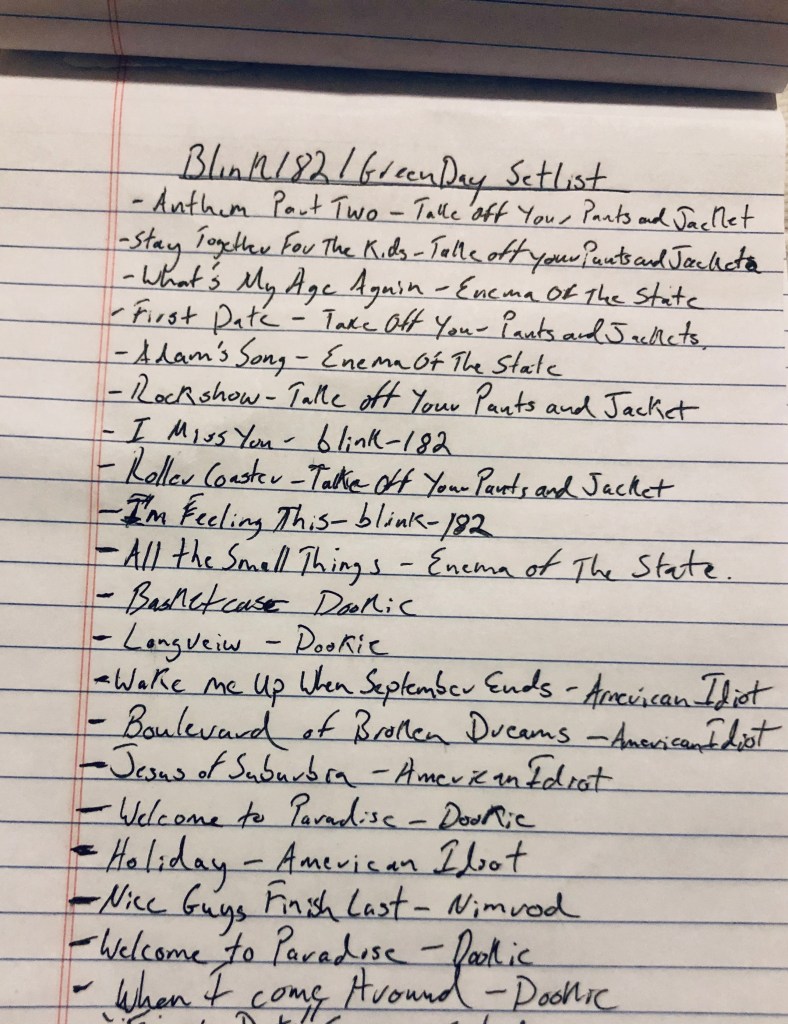 Blink182/GreenDay Setlist
- Anthem Part Two - Take off Your Pants and Jacket
- Stay Together For The Kids - Take off your Pants and Jackets
- What's My Age Again - Enema Of The State
- First Date - Take Off Your Pants and Jackets.
- Adam's Song - Enema Of The State
- Rockshow - Take off Your Pants and Jacket
- I Miss You - blink-182
- Roller Coaster - Take Off Your Pants and Jacket
- I'm Feeling This - blink-182
- All the Small Things - Enema of The State.
- Basketcase Dookie
- Longveiw - Dookie
- Wake me Up When September Ends - American Idiot
- Boulevard of Broken Dreams - American Idiot
- Jesus of Suburbia - American Idiot
- Welcome to Paradise - Dookie
- Holiday - American Idiot
- Nice Guys Finish Last - Nimrod
- Welcome to Paradise - Dookie
- When I come Around - Dookie